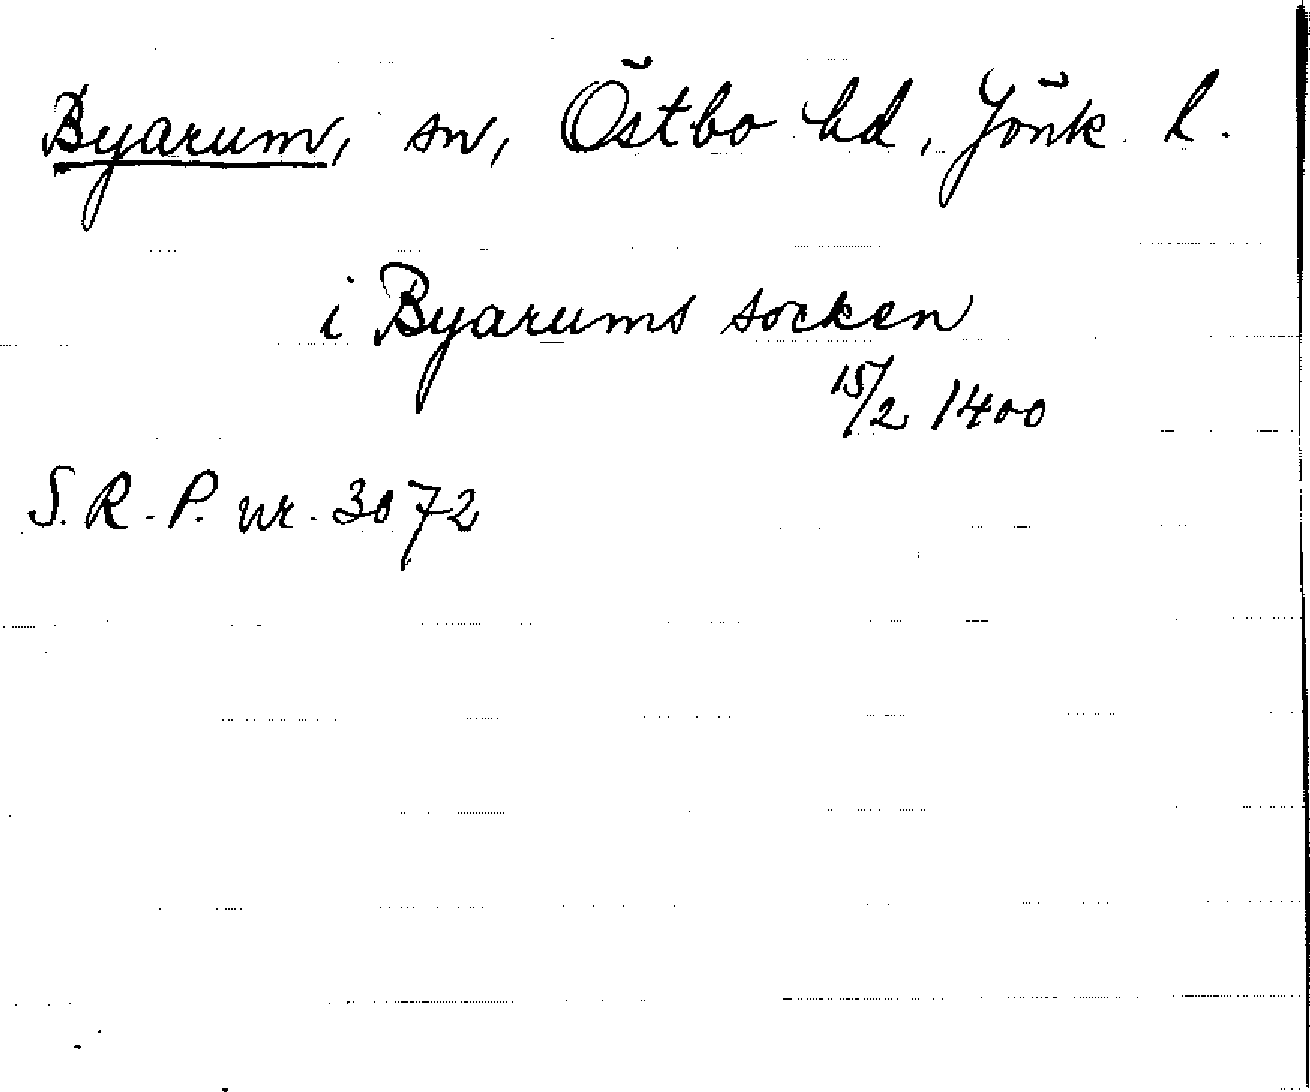 Byarum, sn, Östbo hd, Jönk. l.
i Byarums socken
15/2 1400
S.R.P. nr. 3072